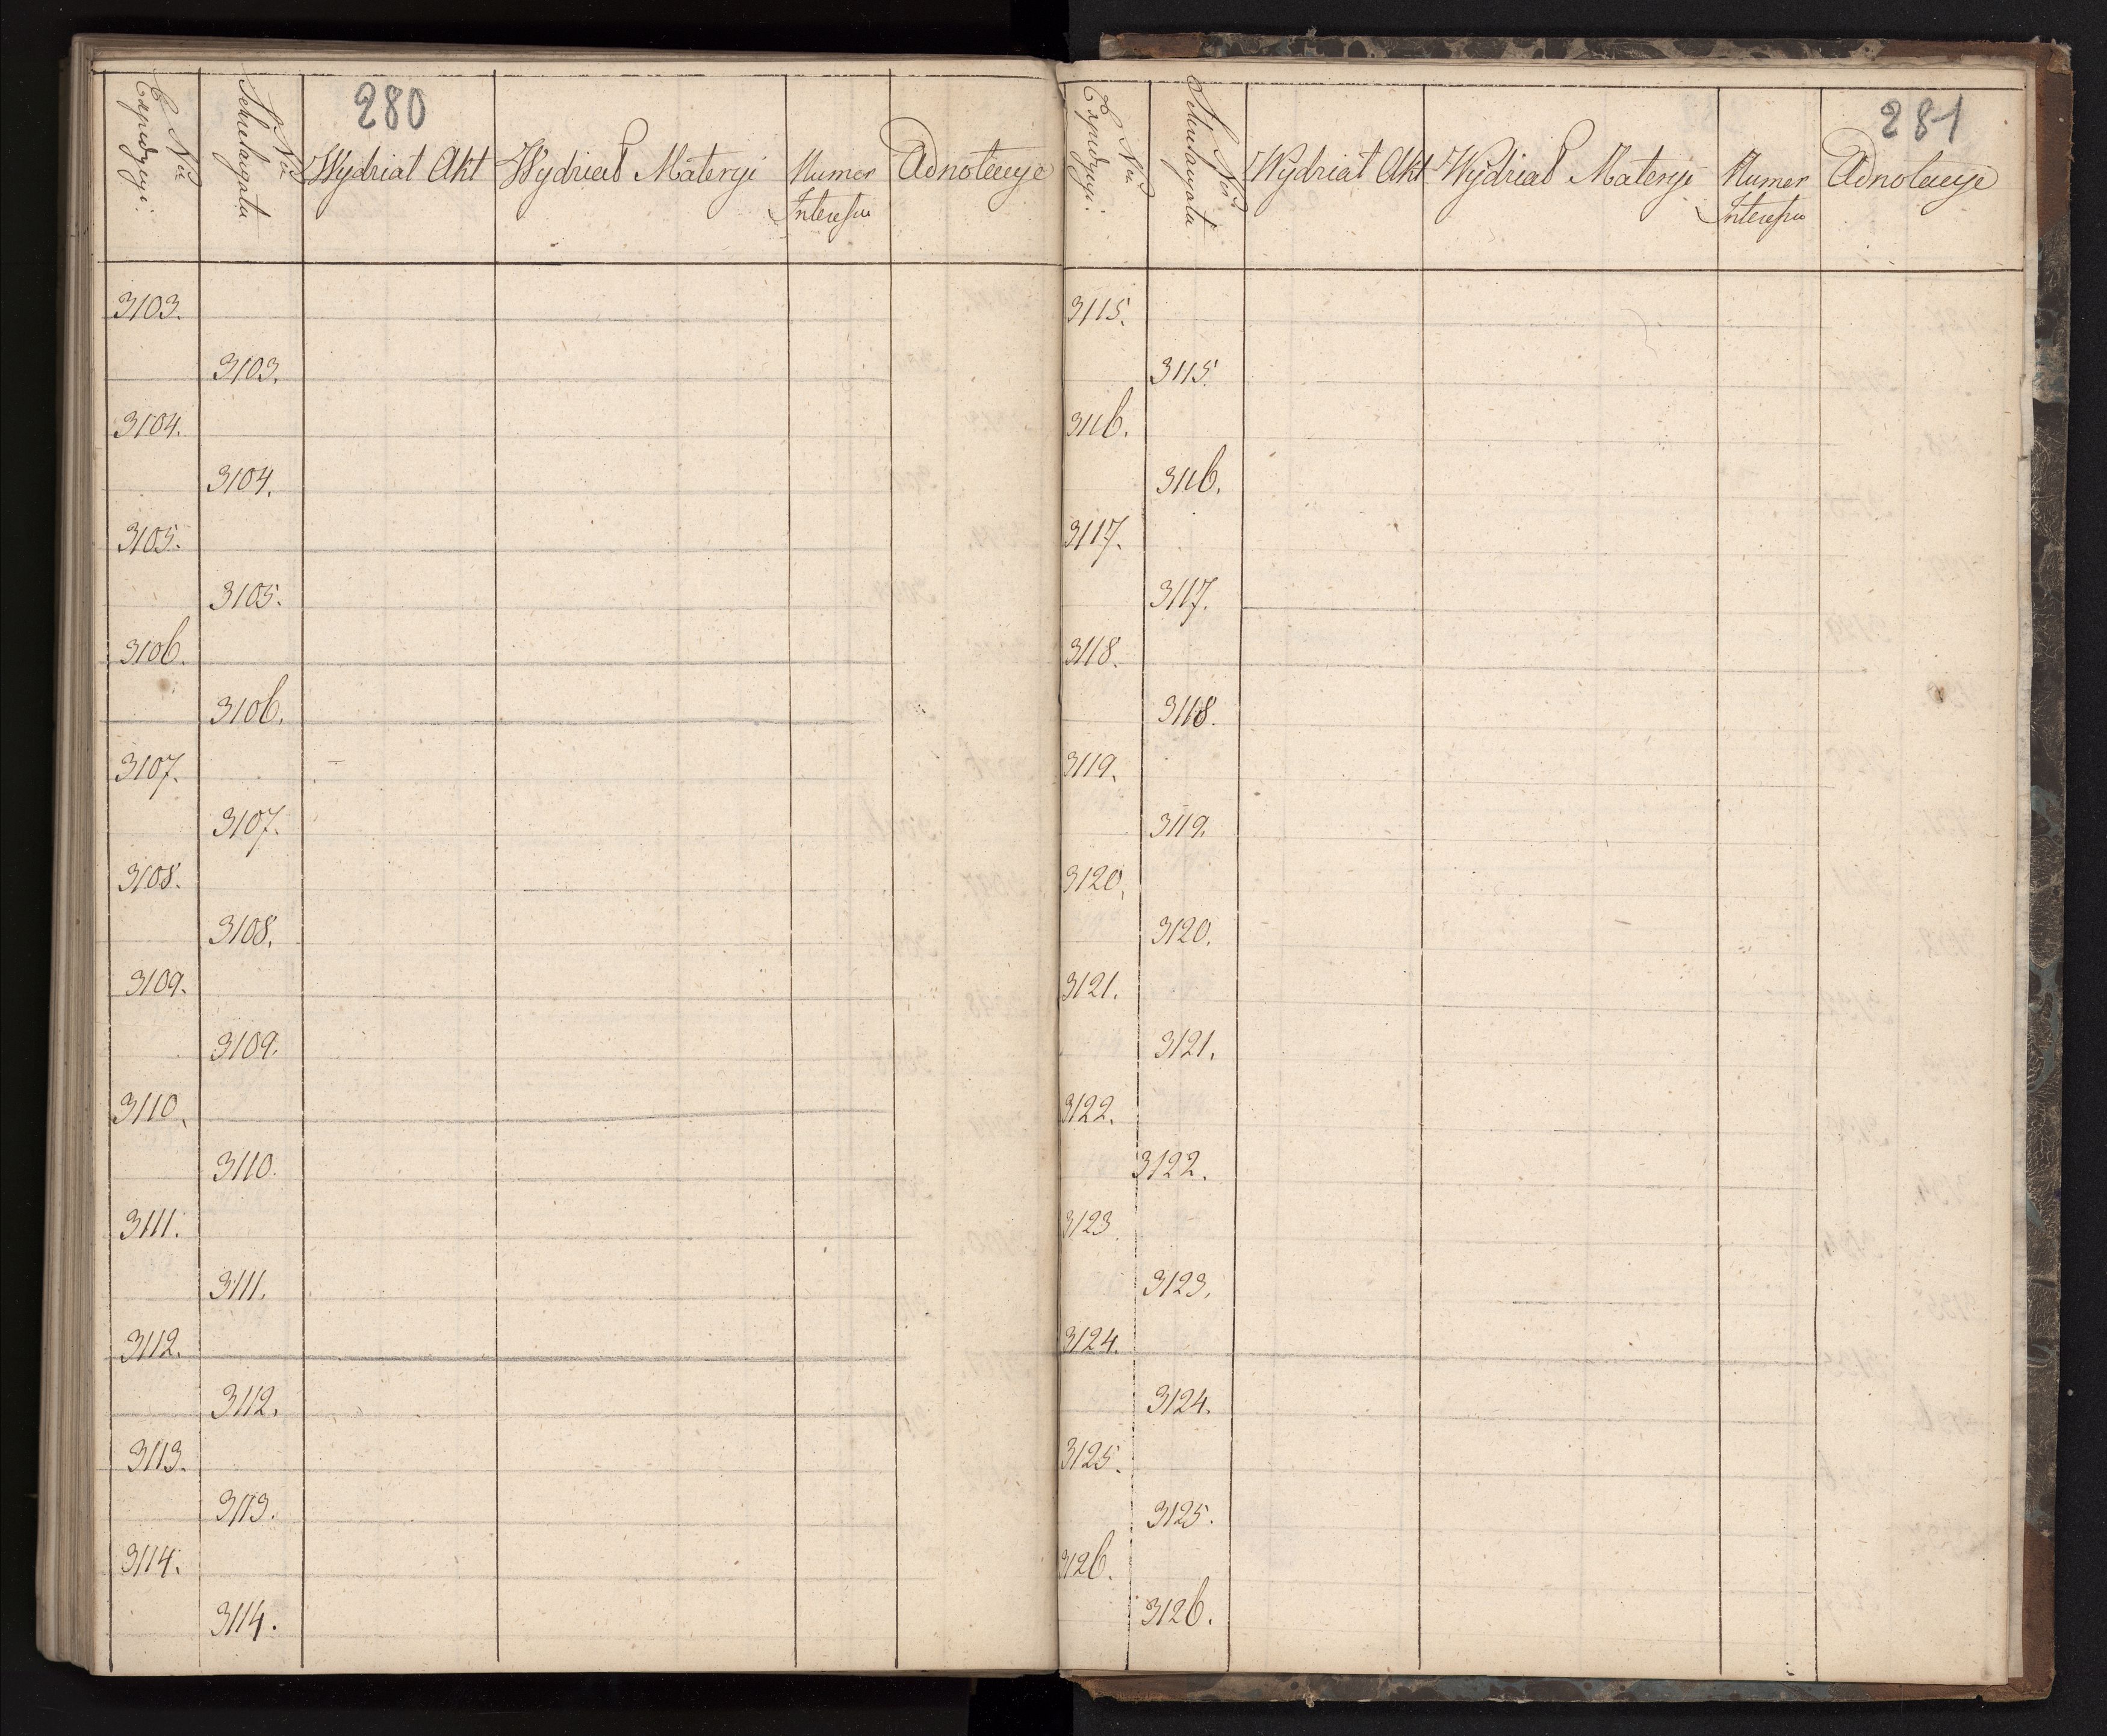 280
Nru Expedycyi.
Nru Schnelagatu
Wydział Akt
Wydział Materyi
Numer
Interessu
Adnotacye
3103.
3103.
3104.
3104.
3105.
3105.
3106.
3106.
3107.
3107.
3108.
3108.
3109.
3109.
3110.
3110.
3111.
3111.
3112.
3112.
3113.
3113.
3114.
3114.
281
Nru Expedycyi.
Wydział Akt
Wydział Materyi
Numer
Interessu
Adnotacye
3115.
3115.
3116.
3116.
3117.
3117.
3118.
3118.
3119.
3119.
3120.
3120.
3121.
3121.
3122.
3122.
3123.
3123.
3124.
3124.
3125.
3125.
3126.
3126.